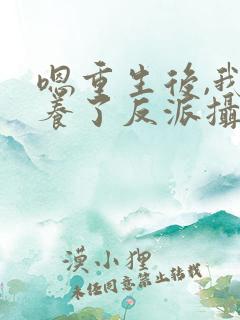 嗯重生後,我
養了反派攝
漠小狸
未經同意禁止轉載